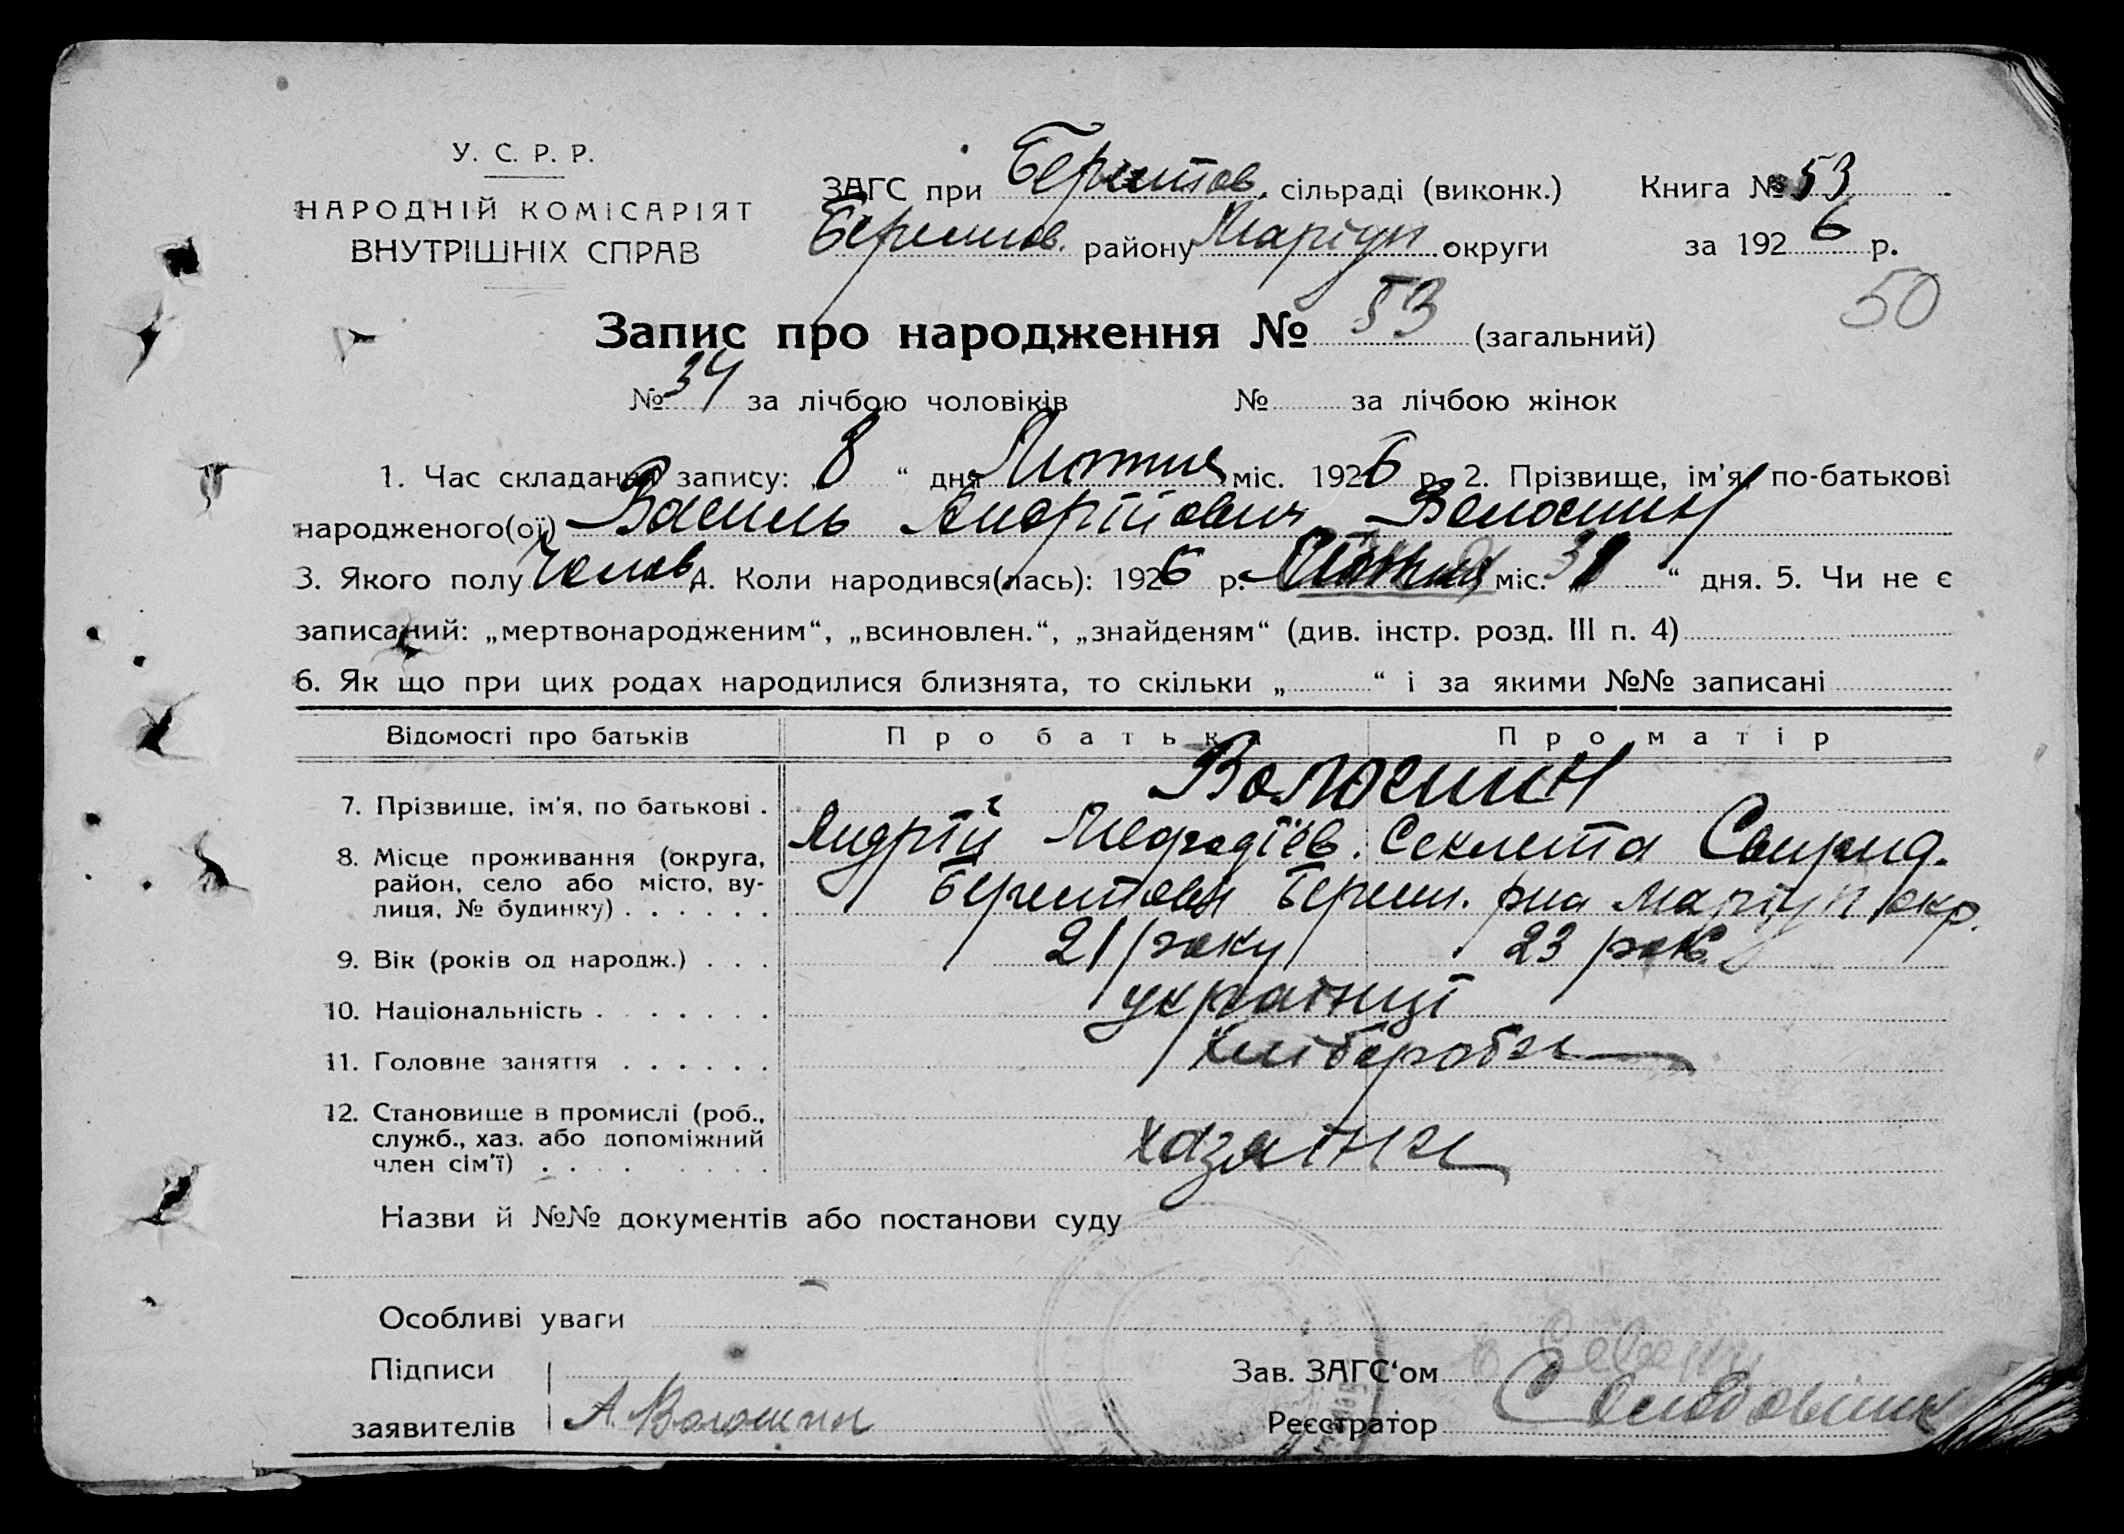 У. С. Р. Р.
НАРОДНІЙ КОМІСАРІЯТ
ВНУТРІШНІХ СПРАВ
ЗАГС при Берестов. сільраді (виконк.) Книга № 53
Берестов. району Маріуп округи за 1926 р.
50
Запис про народження № 53 (загальний)
№ 34 за лічбою чоловіків № за лічбою жінок
1. Час складання запису: 8 “ дня Лютня міс. 1926 р. 2. Прізвище, ім'я, по-батькові
народженого(ої) Василь Андрійович Волошин
3. Якого полу Чолов. 4. Коли народився(лась): 1926 р. міс. “ дня. 5. Чи не є
записаний: „мертвонародженим“, „всиновлен.“, „знайденям“ (див. інстр. розд. III п. 4)
6. Як що при цих родах народилися близнята, то скільки „ “ і за якими №№ записані
Відомості про батьків Про батька Про матір
Волошин
7. Прізвище, ім'я, по батькові .
Андрій Мефодіёв. Секлета Свирид.
8. Місце проживання (округа,
район, село або місто, ву-
лиця, № будинку) . . . . . . Берестовій Берест. р-на Маріуп окр.
9. Вік (років од народж.) . . . 21 року 23 років
10. Національність . . . . . . . українці
11. Головне заняття . . . . . . хлібороби
12. Становище в промислі (роб.,
служб., хаз. або допоміжний
член сім'ї) . . . . . . . . хазяїни
Назви й №№ документів або постанови суду
Особливі уваги
Підписи Зав. ЗАГС‘ом
заявителів А. Волошин Реєстратор